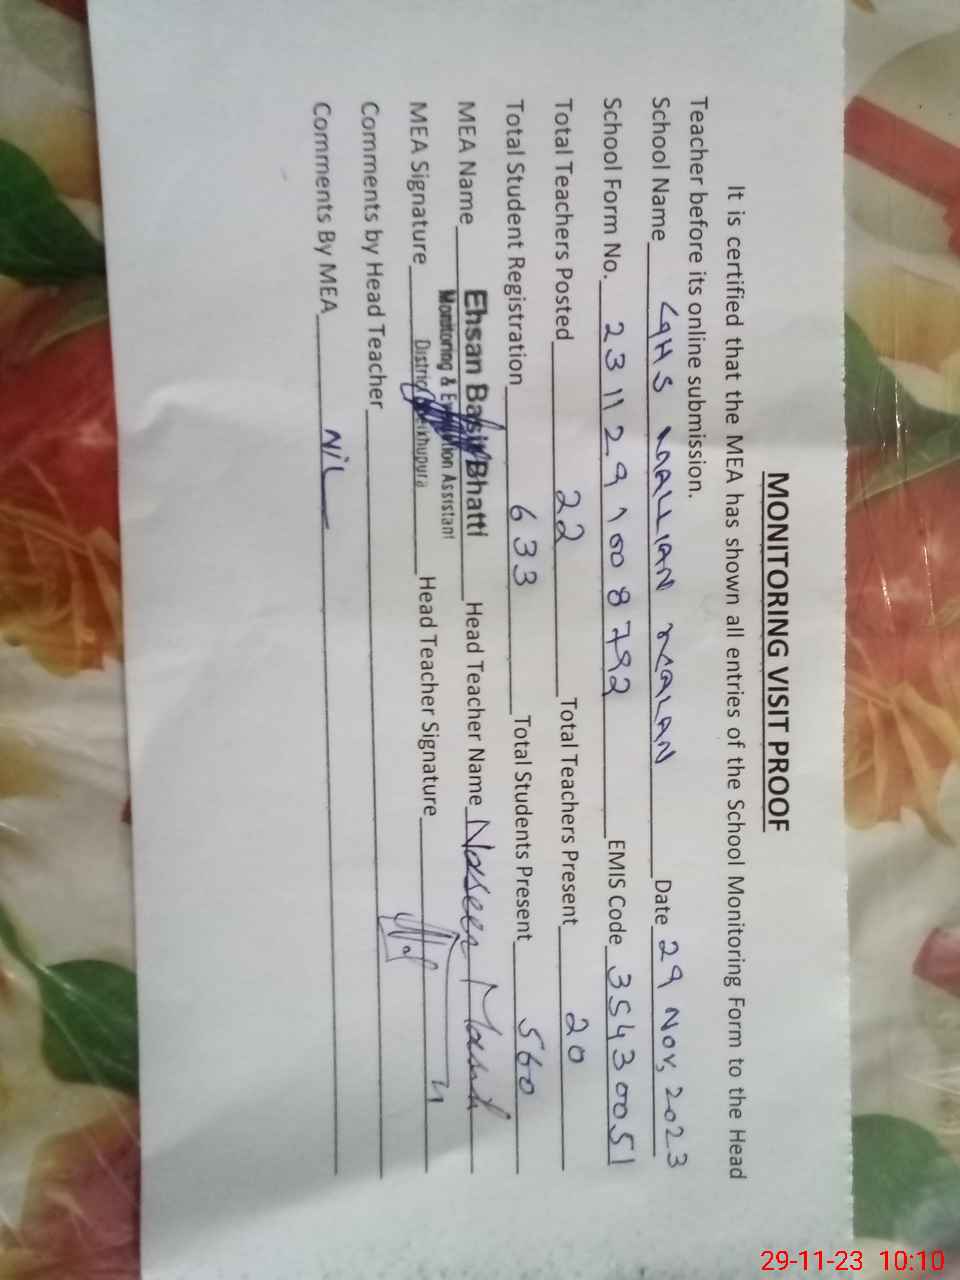 MONITORING VISIT PROOF
It is certified that the MEA has shown all entries of the School Monitoring Form to the Head
Teacher before its online submission.
School Name GHS MALLIAN KALAN Date 29 Nov, 2023
School Form No. 2311291008792 EMIS Code 35430051
Total Teachers Posted 22 Total Teachers Present 20
Total Student Registration 633 Total Students Present 560
MEA Name Ehsan Basir Bhatti Head Teacher Name Naseer
Monitoring & Evaluation Assistant
MEA Signature District Sheikhupura Head Teacher Signature
Comments by Head Teacher
Comments By MEA Nil
29-11-23 10:10